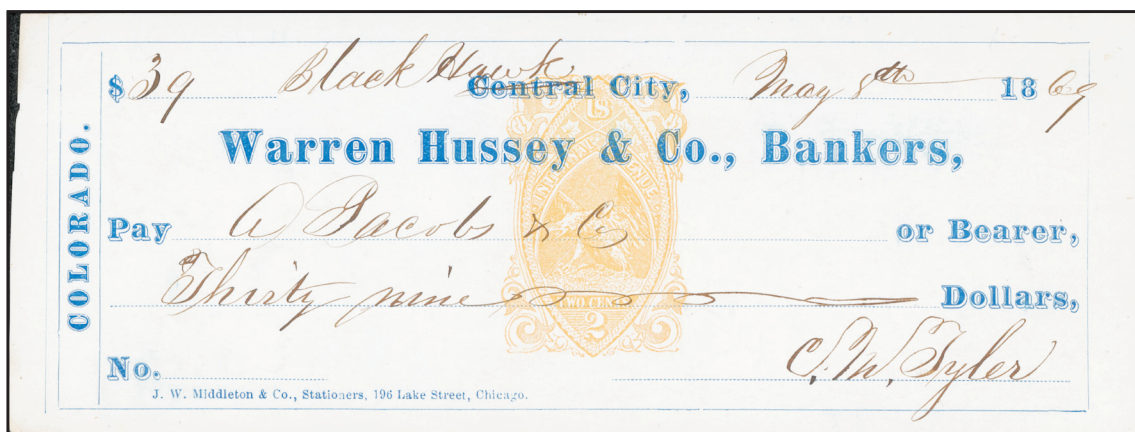 $ 39 Black Hawk Central City, May 8th 1869
Warren Hussey & Co., Bankers,
Pay A Jacobs & Co or Bearer,
Thirty nine Dollars,
C. M. Tyler
No.
J. W. Middleton & Co., Stationers, 196 Lake Street, Chicago.
COLORADO.
U S
INTER REVENUE
TWO CENTS
2